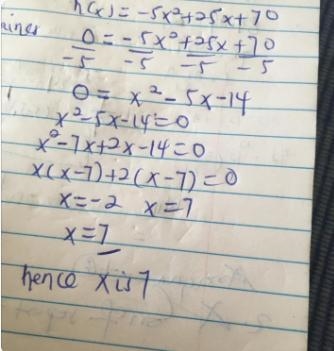 h(x) = -5x²+25x+70
0 = -5x²+25x+70
-5 -5 -5 -5
0 = x²-5x-14
x²-5x-14=0
x²-7x+2x-14=0
x(x-7)+2(x-7)=0
x=-2 x=7
x=7
hence x is 7